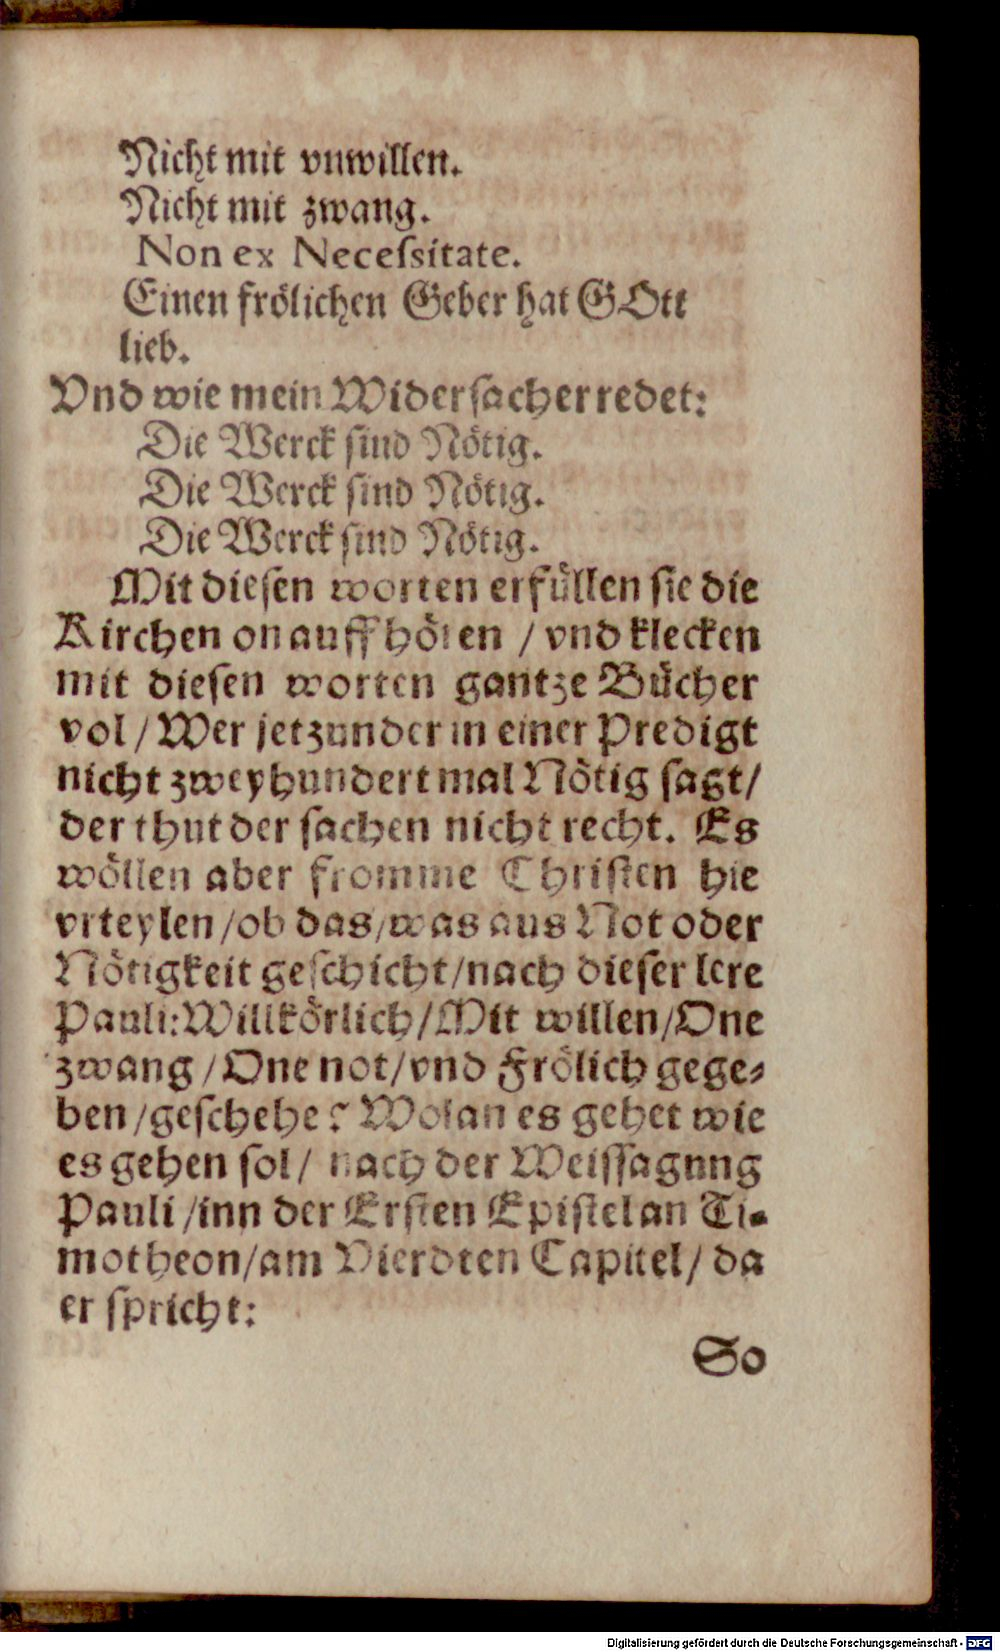 Nicht mit vnwillen.
Nicht mit zwang.
Non ex Necesſitate.
Einen frölichen Geber hat GOtt
lieb.
Vnd wie mein Widerſacher redet:
Die Werck ſind Nötig.
Die Werck ſind Nötig.
Die Werck ſind Nötig.
Mit dieſen worten erfüllen ſie die
Kirchen on auffhören / vnd klecken
mit dieſen worten gantze Bücher
vol / Wer jetzunder in einer Predigt
nicht zweyhundert mal Nötig ſagt /
der thut der ſachen nicht recht. Es
wöllen aber fromme Chriſten hie
vrteylen / ob das / was aus Not oder
Nötigkeit geſchicht / nach dieſer lere
Pauli: Willkörlich / Mit willen / One
zwang / One not / vnd Frölich gege-
ben / geſchehe? Wolan es gehet wie
es gehen ſol / nach der Weiſſagung
Pauli / inn der Erſten Epiſtel an Ti-
motheon / am Vierdten Capitel / da
er ſpricht:
So
Digitalisierung gefördert durch die Deutsche Forschungsgemeinschaft - DFG